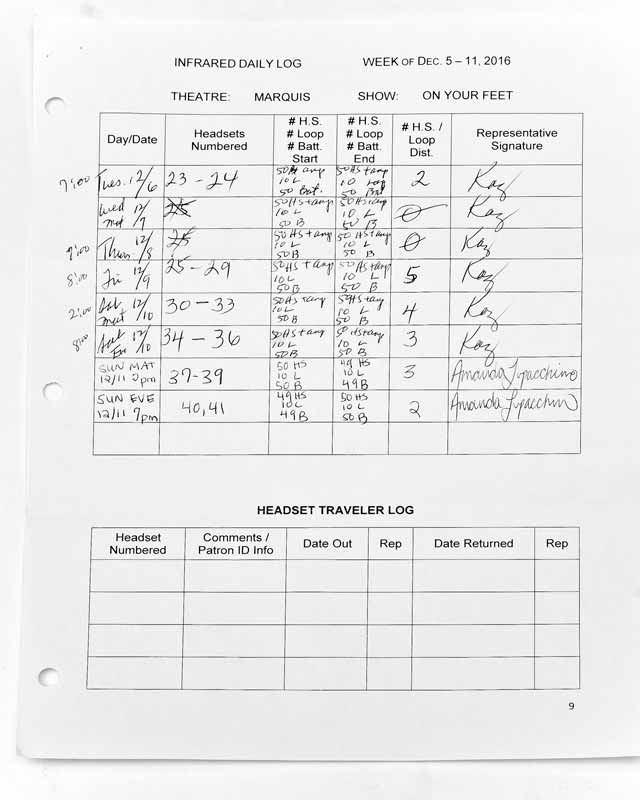 INFRARED DAILY LOG WEEK OF DEC. 5 – 11, 2016
THEATRE: MARQUIS SHOW: ON YOUR FEET
Day/Date Headsets Numbered # H.S. # Loop # Batt. Start # H.S. # Loop # Batt. End # H.S. / Loop Dist. Representative Signature
7:00 Tues. 12/6 23 - 24 50 HS amp 10 L 50 Bat. 50 HS + amp 10 Loop 50 Bat 2 Kaz
Wed Mat 12/7 25 50 HS + amp 10 L 50 B 50 HS + amp 10 L 50 B 0 Kaz
Thurs 12/8 25 50 HS + amp 10 L 50 B 50 HS + amp 10 L 50 B 0 Kaz
8:00 Fri 12/9 25 - 29 50 HS + amp 10 L 50 B 50 HS + amp 10 L 50 B 5 Kaz
2:00 Sat mat 12/10 30 - 33 50 HS + amp 10 L 50 B 50 HS + amp 10 L 50 B 4 Kaz
8:00 Sat Eve 12/10 34 - 36 50 HS + amp 10 L 50 B 50 HS + amp 10 L 50 B 3 Kaz
SUN MAT 12/11 2pm 37-39 50 HS 10 L 50 B 49 HS 10 L 49B 3 Amanda
SUN EVE 12/11 7pm 40, 41 49 HS 10 L 49 B 50 HS 10 L 50 B 2 Amanda
HEADSET TRAVELER LOG
Headset Numbered Comments / Patron ID Info Date Out Rep Date Returned Rep
9